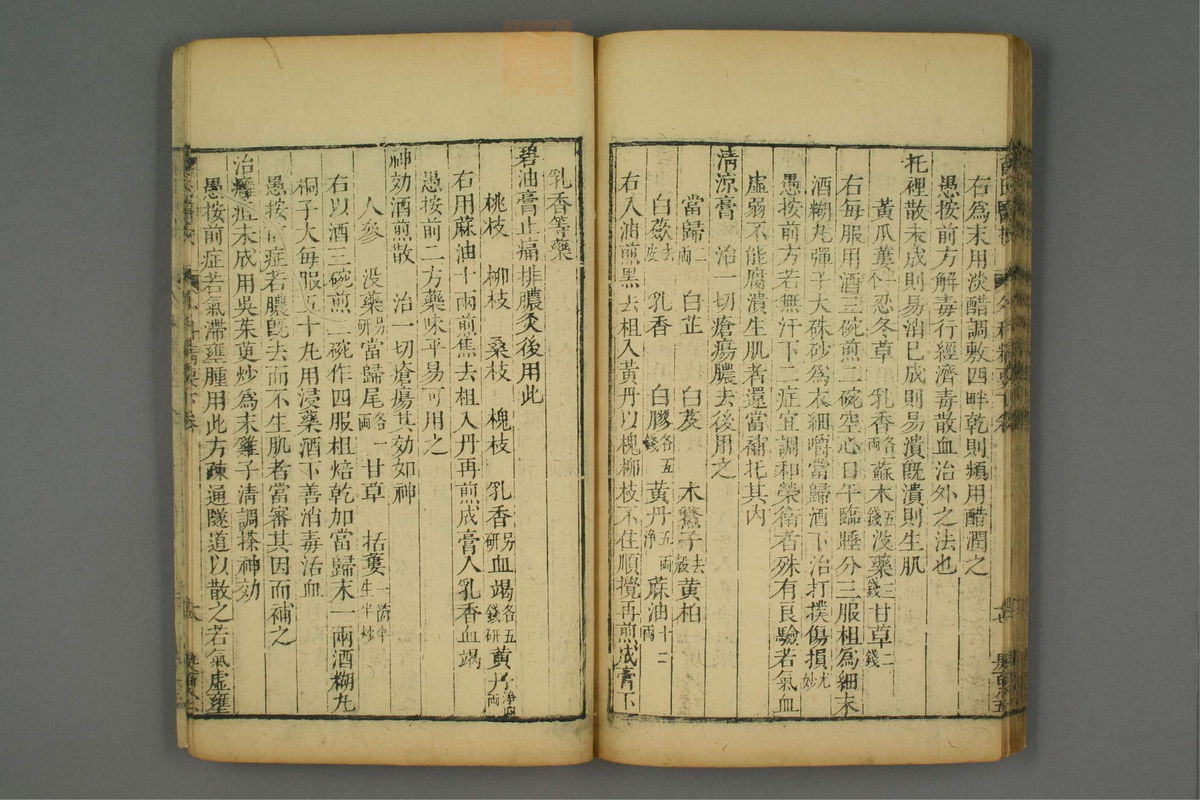 右爲末用淡醋調敷四畔乾則頻用醋潤之
愚按前方解毒行經濟毒散血治外之法也
托裡散未成則易消已成則易潰既潰則生肌
黃瓜蔞一个忍冬草 乳香各一兩蘇木五錢没藥三錢甘草二錢
右每服用酒三碗煎二碗空心日午臨睡分三服柤爲細末
酒糊丸彈子大硃砂爲衣細嚼當歸酒下治打撲傷損尤妙
愚按前方若無汗下二症宜調和榮衛者殊有良驗若氣血
虛弱不能腐潰生肌者還當補托其内
清涼膏 治一切瘡瘍膿去後用之
當歸二兩 白芷 白芨 木鱉子去殼黃柏
白蘞去皮 乳香 白膠各五錢黃丹五兩淨蔴油十二兩
右入油煎黑去柤入黃丹以槐柳枝不住順攪再煎成膏下
乳香等藥
碧油膏止痛排膿灸後用此
桃枝 柳枝 桑枝 槐枝 乳香另研血竭各五錢研黃丹淨四兩
右用蔴油十兩煎焦去柤入丹再煎成膏入乳香血竭
愚按前二方藥味平易可用之
神効酒煎散 治一切瘡瘍其効如神
人參 没藥另研當歸尾各一兩 甘草 括蔞一箇半生半炒
右以酒三碗煎二碗作四服柤焙乾加當歸末一兩酒糊丸
桐子大每服五十丸用浸藥酒下善消毒活血
愚按前症若膿既去而不生肌者當審其因而補之
治癰疽未成用吳茱萸炒爲末雞子清調搽神効
愚按前症若氣滯壅腫用此方疎通隧道以散之若氣虛壅